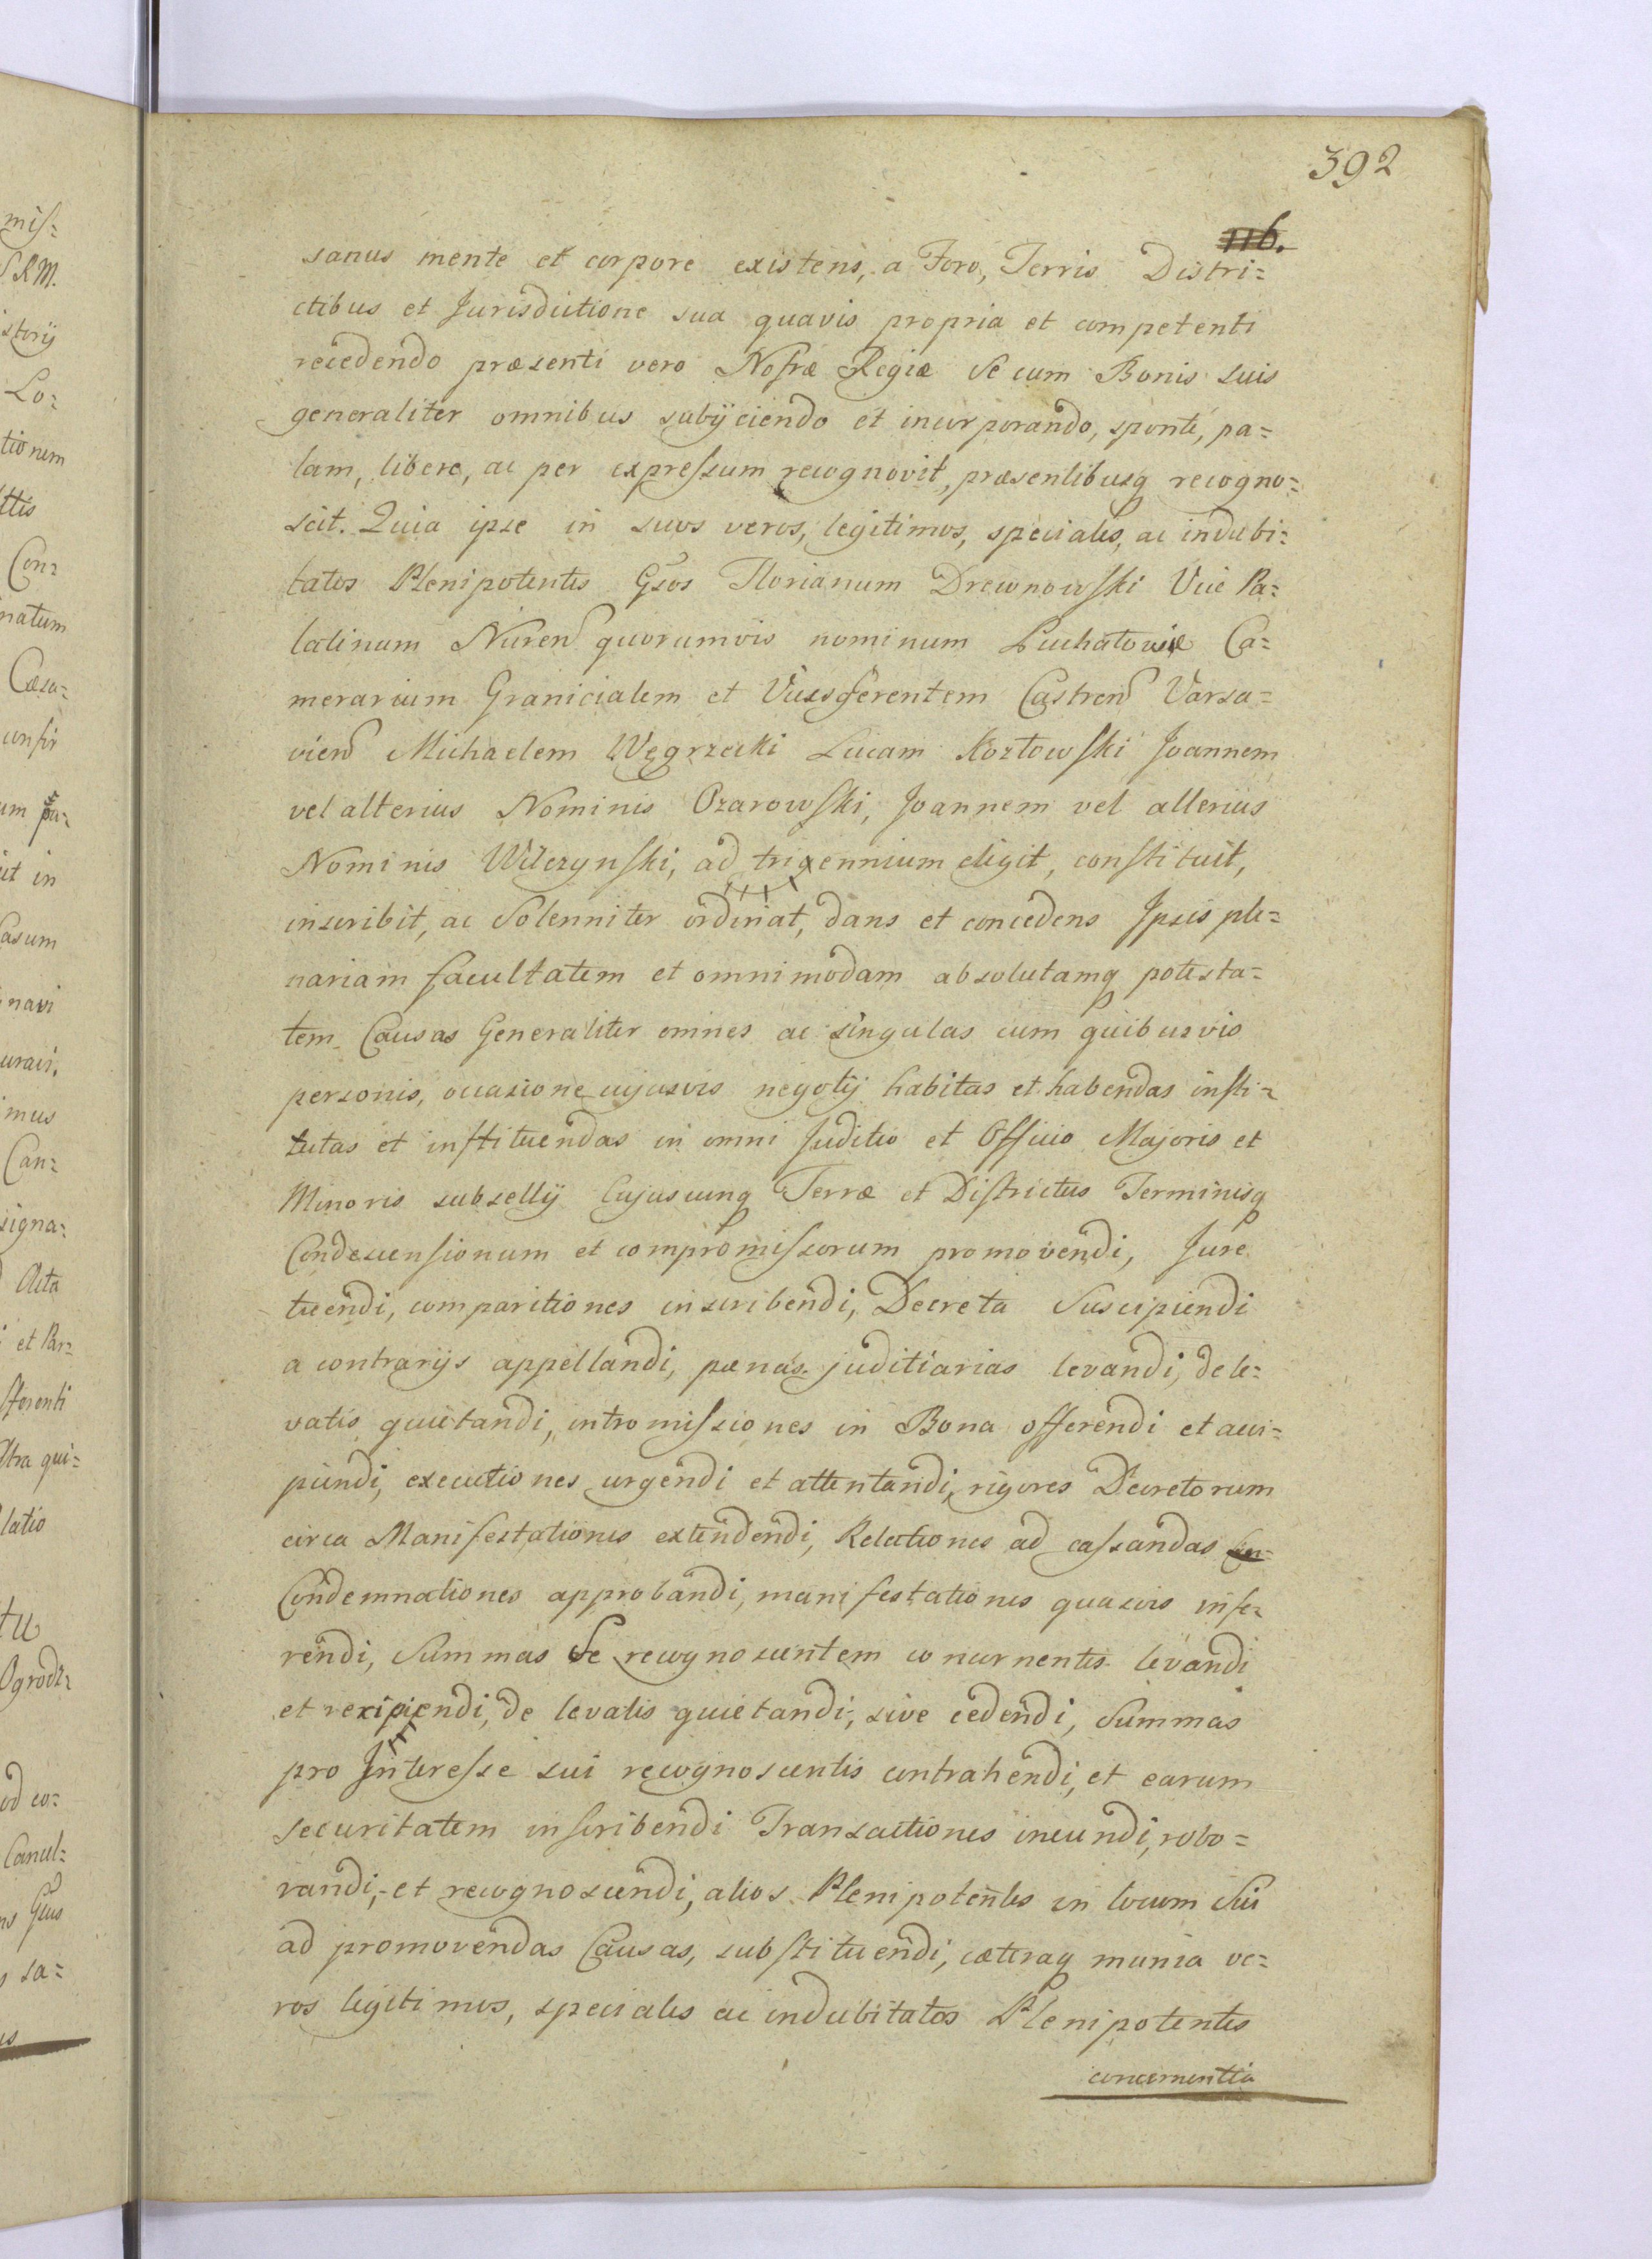 392
116.
sanus mente et corpore existens, a Foro, Terris Distri=
ctibus et Jurisdictione sua quavis propria et competenti
recedendo præsenti vero Nostræ Regiæ se cum Bonis suis
generaliter omnibus subijciendo et incorporando, sponte, pa=
lam, libere, ac per expressum recognovit, præsentibusq recogno=
scit. Quia ipse in suos veros, legitimos, speciales, ac indubi=
tatos Plenipotentes Gsos Florianum Drewnowski Vice Pa=
latinum Nuren quorumvis nominum Luchatowie Ca=
merarium Granicialem et Vicesgerentem Castren Varsa=
vien Michaelem Węgrzecki Lucam Kozłowski Joannem
vel alterius Nominis Ozarowski, Joannem vel alterius
Nominis Wilczynski, ad triennium eligit, constituit,
inscribit, ac Solenniter ordinat, dans et concedens Ipsis ple=
nariam facultatem et omnimodam absolutamq potesta=
tem Causas Generaliter omnes ac singulas cum quibusvis
personis, occasione cujusvis negotij habitas et habendas insti=
tutas et instituendas in omni Juditio et Officio Majoris et
Minoris subsellij Cujuscunq Terræ et Districtus Terminisq
Condescensionum et compromissorum promovendi, Jure
tuendi, comparitiones inscribendi, Decreta Suscipiendi
a contrarijs appellandi, pænas juditiarias levandi, de le=
vatis quietandi, intromissiones in Bona offerendi et acci=
piendi, executiones urgendi et attentandi, rigores Decretorum
circa Manifestationes extendendi, Relationes ad cassandas
Condemnationes approbandi, manifestationes quasvis infe=
rendi, Summas Se recognoscentem concernentes levandi
et recipiendi, de levatis quietandi, sive cedendi, Summas
pro Interesse sui recognoscentis contrahendi, et earum
securitatem inscribendi Transactiones ineundi, robo=
randi, et recognoscendi, alios Plenipotentes in locum Sui
ad promovendas Causas, substituendi, cæteraq munia ve=
ros legitimos, speciales ac indubitatos Plenipotentes
concernentia